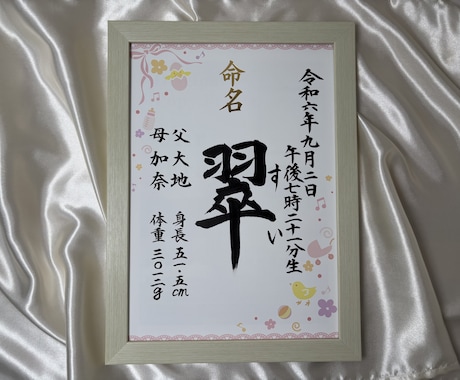 命名
令和六年九月二日
午後七時二十一分生
翠
すい
父 大地
母 加奈
身長 五一・五cm
体重 三〇一二g